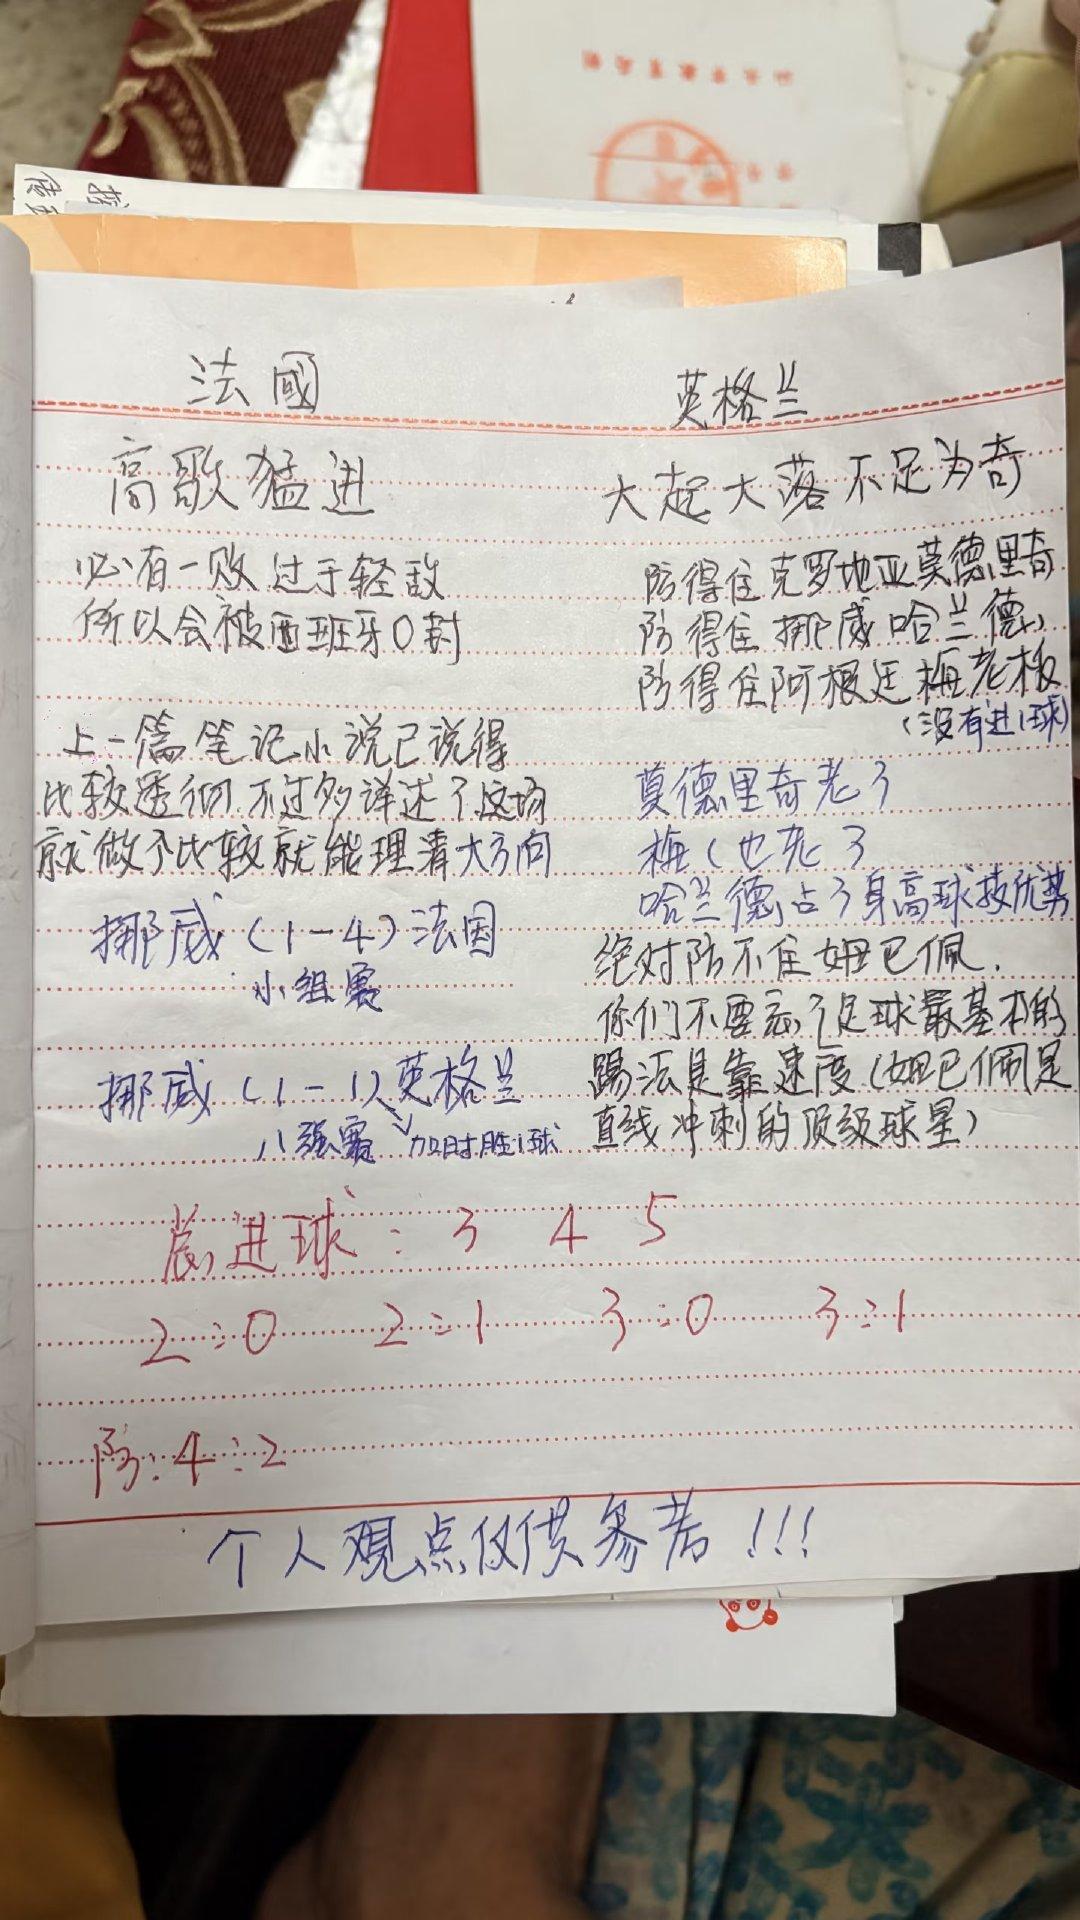 法國
高歌猛进
必有一败 过于轻敌
所以会被西班牙0封
上一篇笔记小说已说得
比较透彻.不过多详述了这场
就做个比较就能理清大方向
挪威(1-4)法国
小组赛
挪威(1-1)英格兰
八强赛 加时胜1球
英格兰
大起大落不足为奇
防得住克罗地亚莫德里奇
防得住挪威哈兰德
防得住阿根廷梅老板
(没有进球)
莫德里奇老了
梅(也老了
哈兰德占了身高球技优势
绝对防不住姆巴佩.
你们不要忘了足球最基本的
踢法是靠速度(姆巴佩是
直线冲刺的顶级球星)
总进球: 3 4 5
2:0 2:1 3:0 3:1
防:4:2
个人观点仅供参考!!!